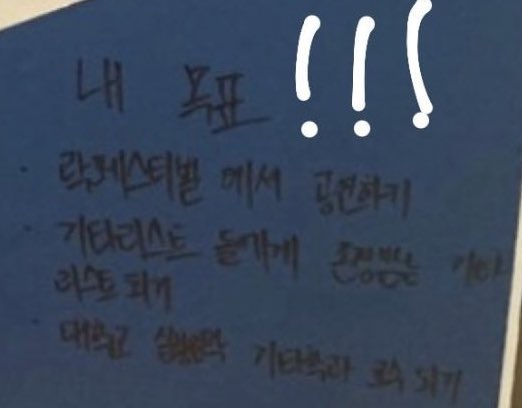 내 목표 !!!
· 락페스티벌 에서 공연하기
· 기타리스트 들에게 존경받는 기타
리스트 되기
· 대학교 실용음악 기타학과 교수 되기